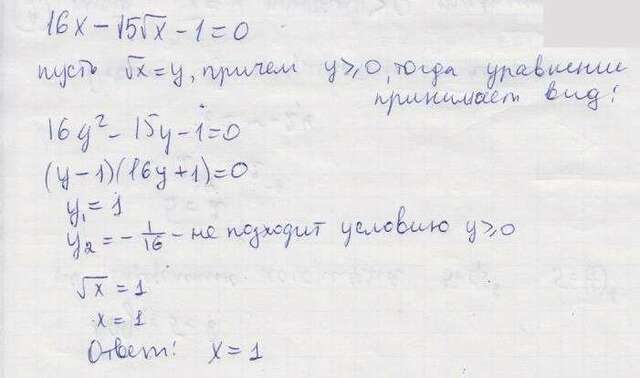 16x − 15√x − 1 = 0
пусть √x = y, причем y ⩾ 0, тогда уравнение
принимает вид:
16y² − 15y − 1 = 0
(y − 1)(16y + 1) = 0
y₁ = 1
y₂ = − 1/16 − не подходит условию y ⩾ 0
√x = 1
x = 1
Ответ: x = 1